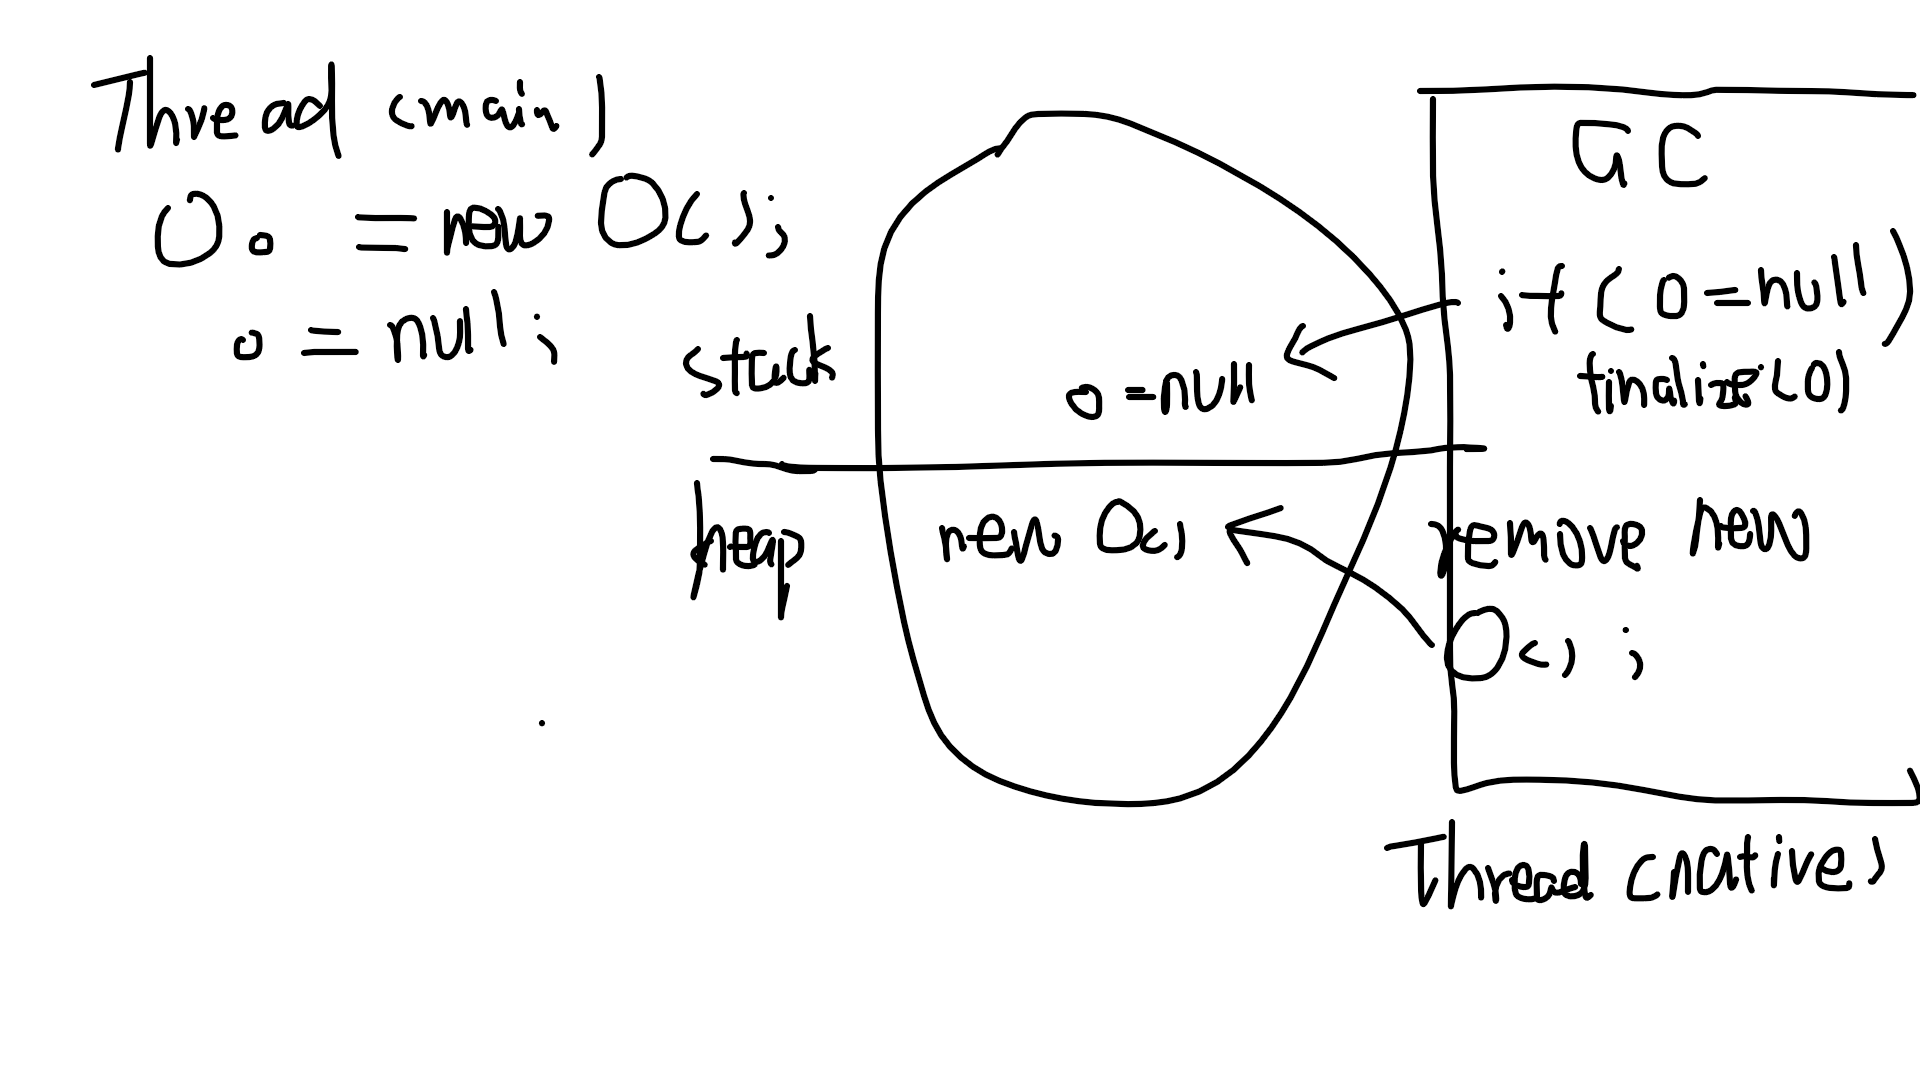 Thread (main)
O o = new O();
o = null;
stack
o = null
heap
new O()
GC
if (O = null)
finalize(O)
remove new
O();
Thread (native)